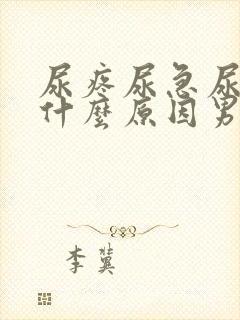 尿疼尿急尿
什麼原因男
李冀